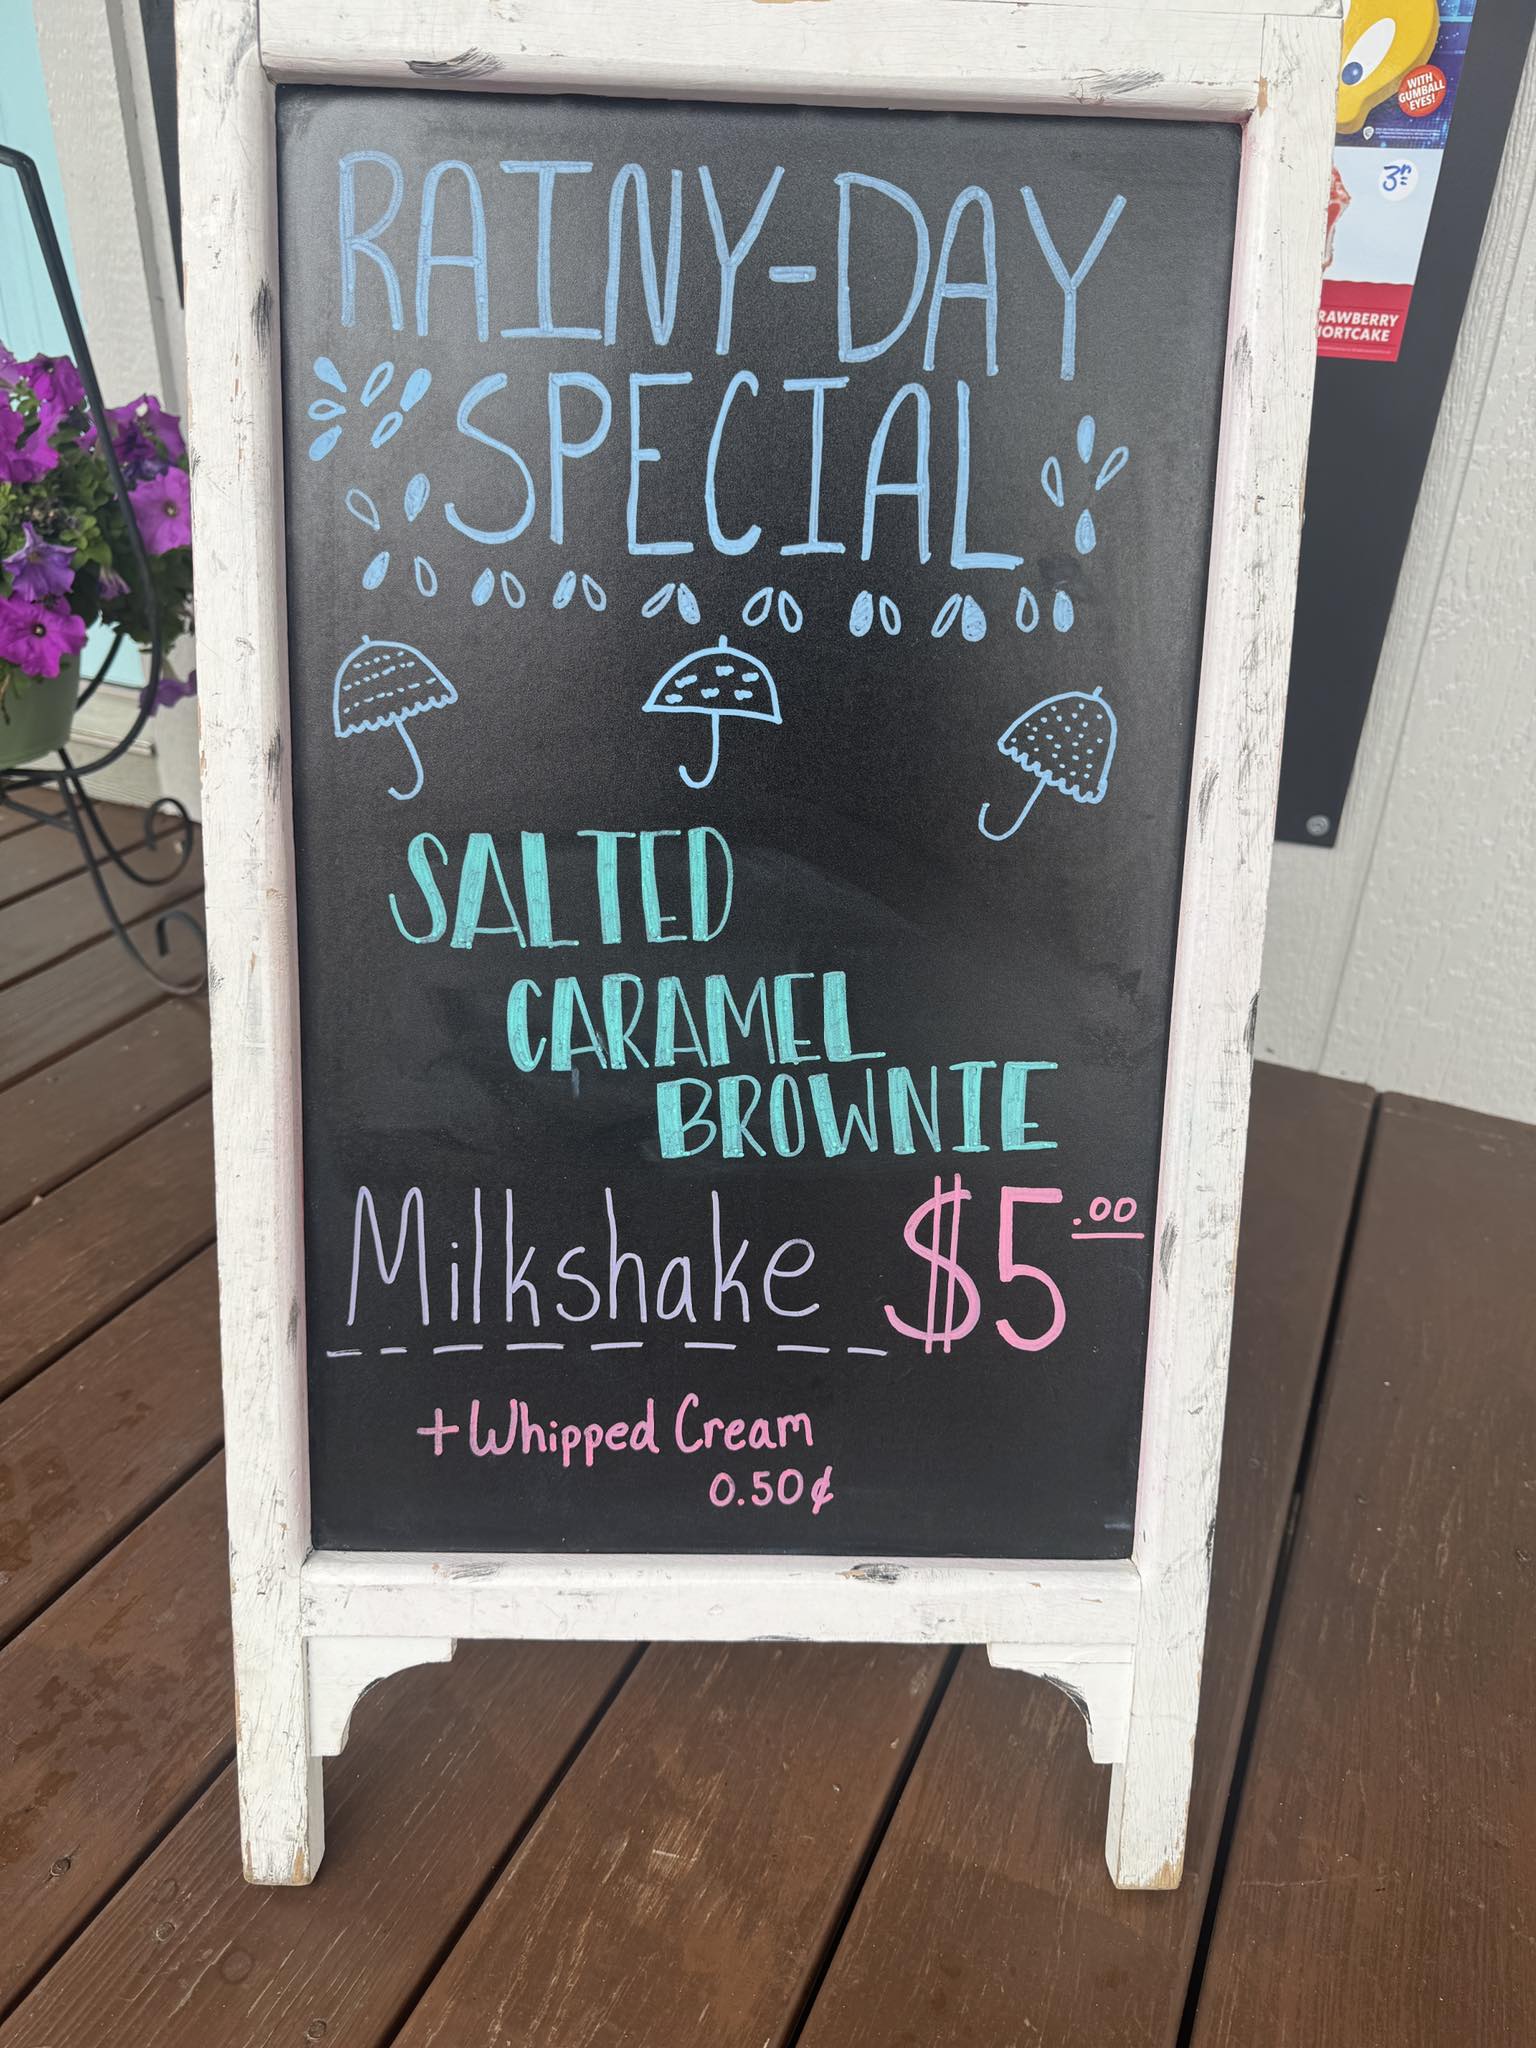 RAINY-DAY
SPECIAL
SALTED
CARAMEL
BROWNIE
Milkshake $5.00
+Whipped Cream
0.50¢
WITH
GUMBALL
EYES!
RAWBERRY
ORTCAKE